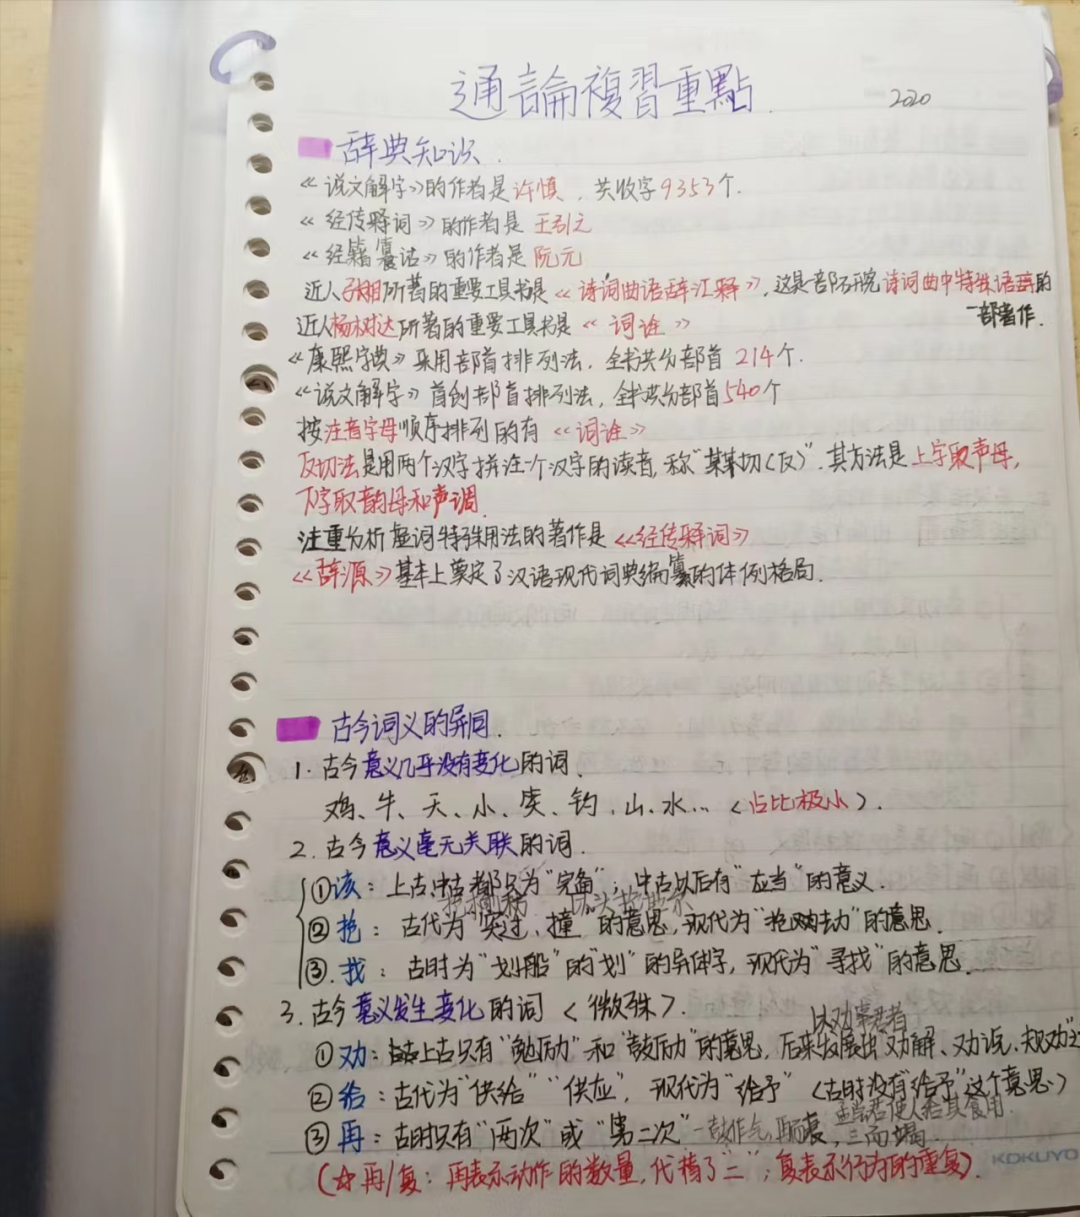 通論複習重點.
2020
辞典知识.
《说文解字》的作者是许慎,共收字9353个.
《经传释词》的作者是王引之
《经籍籑诂》的作者是阮元
近人所著的重要工具书是《诗词曲语辞汇释》,这是部研究诗词曲中特殊语辞的
一部著作.
近人杨树达所著的重要工具书是《词诠》
《康熙字典》采用部首排列法,全书共分部首214个.
《说文解字》首创部首排列法,全书共分部首540个
按注音字母顺序排列的有《词诠》
反切法是用两个汉字拼注一个汉字的读音,称"某某切(反)".其方法是上字取声母,
下字取韵母和声调.
注重分析虚词特殊用法的著作是《经传释词》
《辞源》基本上奠定了汉语现代词典编纂的体例格局.
古今词义的异同.
1.古今意义几乎没有变化的词.
鸡、牛、天、小、卖、钓、山、水...<占比极小>.
2.古今意义毫无关联的词.
①该:上古中古都只为"完备";中古以后有"应当"的意义.
②抢:古代为"突过、撞"的意思,现代为"抢夺"的意思.
③.找:古时为"划船"的"划"的异体字,现代为"寻找"的意思.
3.古今意义发生变化的词<微殊>.
以劝事君者
①劝:上古只有"勉励"和"鼓励"的意思,后来发展出"劝解、劝说、规劝"之
②给:古代为"供给""供应",现代为"给予"<古时没有"给予"这个意思>
孟尝君使人给其食用.
③再:古时只有"两次"或"第二次"一鼓作气,再而衰,三而竭.
(☆再/复:再表示动作的数量,代替了"二";复表示行为的重复).
KOKUYO